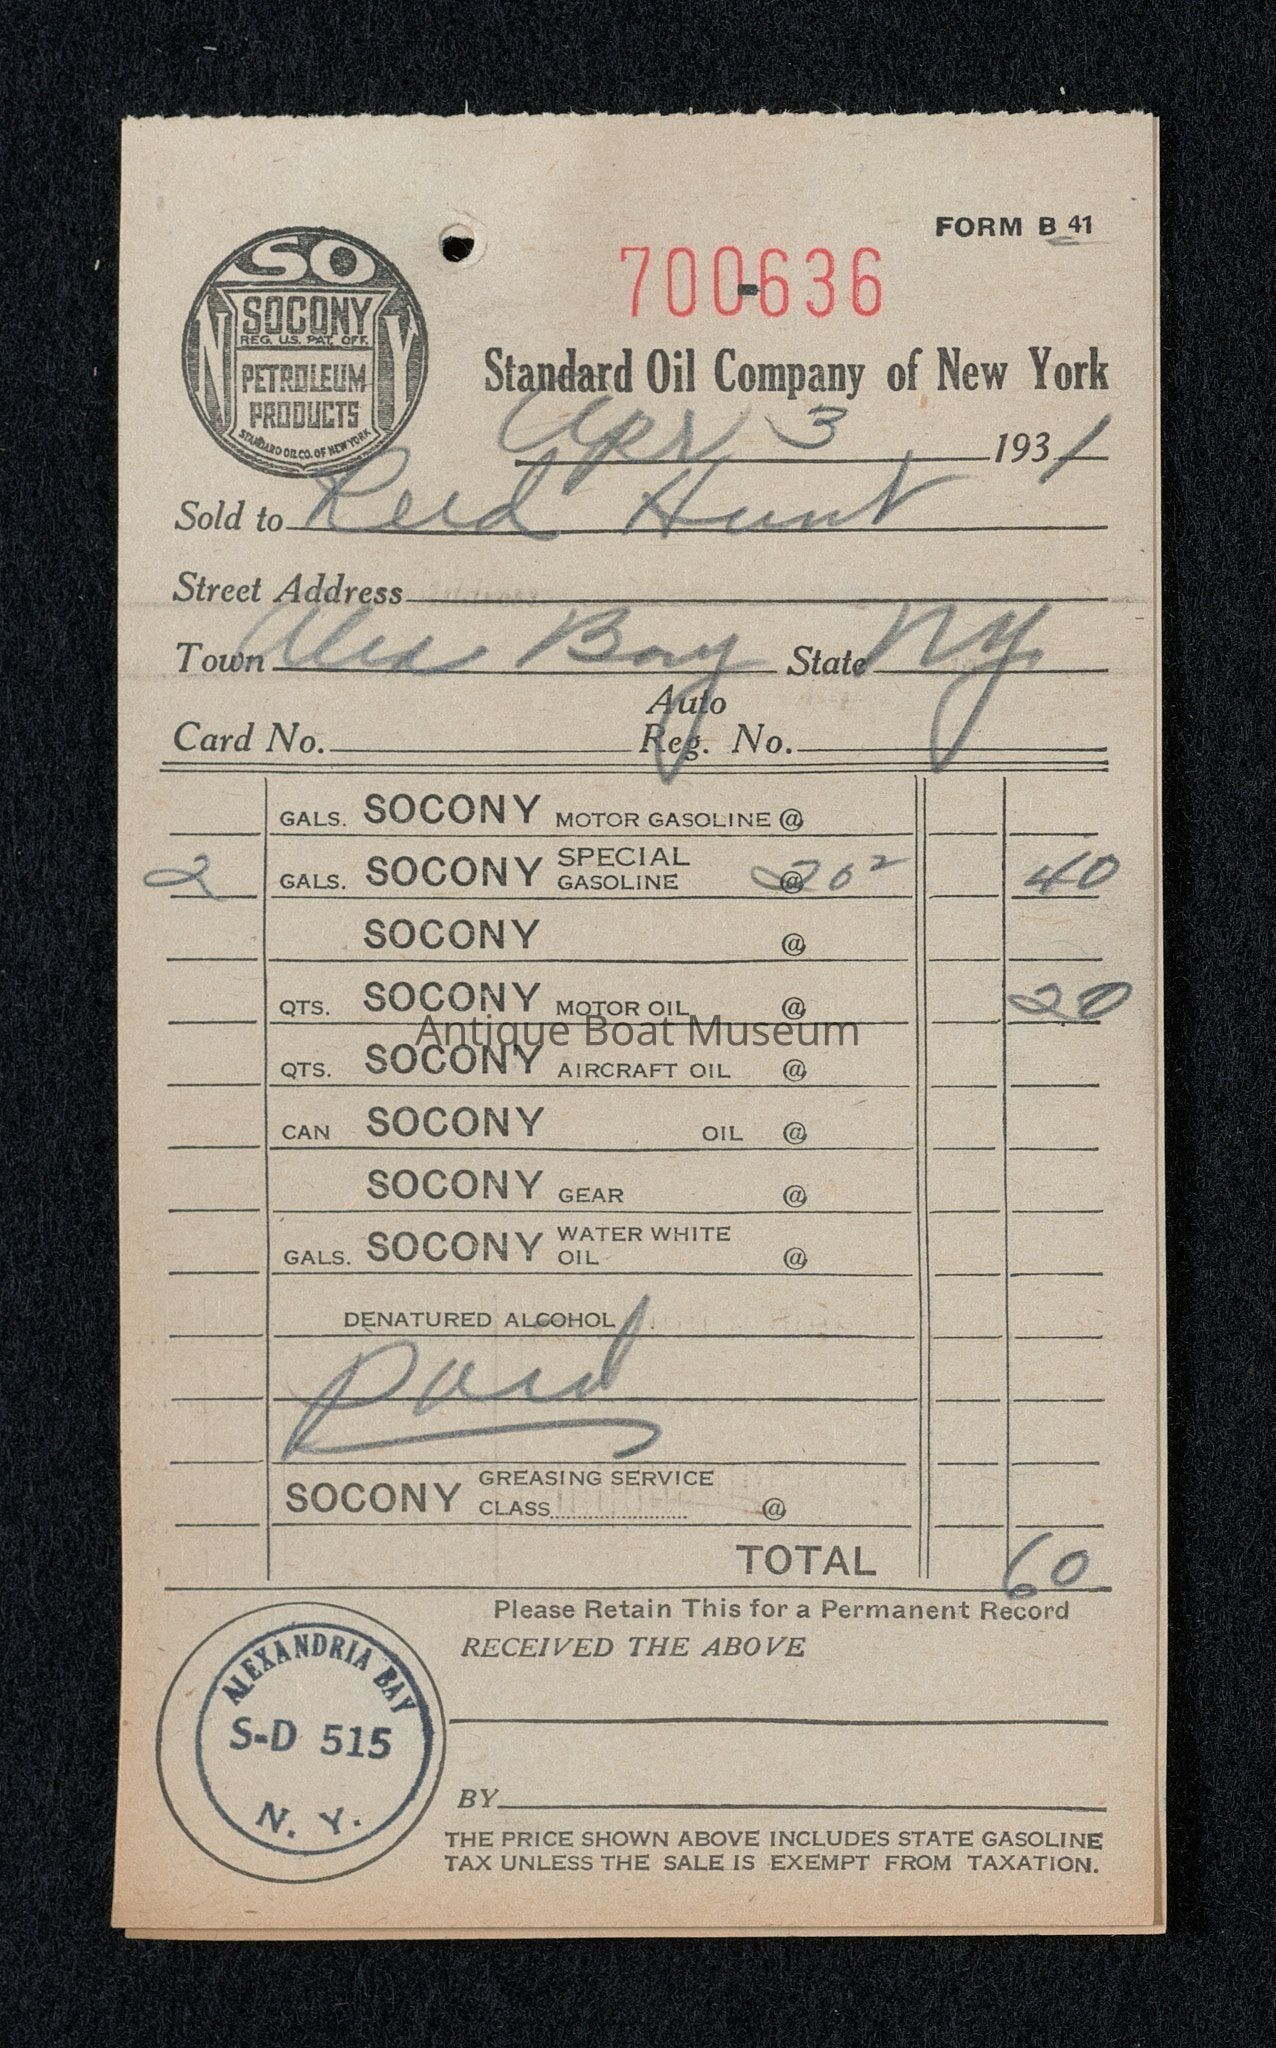 FORM B 41
SO
N Y
SOCONY
REG. U.S. PAT. OFF.
PETROLEUM
PRODUCTS
STANDARD OIL CO. OF NEW YORK
700-636
Standard Oil Company of New York
Apr 3 1931
Sold to Reid Hunt
Street Address
Town Alex Bay State NY
Card No. Auto Reg. No.
GALS. SOCONY MOTOR GASOLINE @
2 GALS. SOCONY SPECIAL GASOLINE @ 20² 40
SOCONY @
QTS. SOCONY MOTOR OIL @ 20
Antique Boat Museum
QTS. SOCONY AIRCRAFT OIL @
CAN SOCONY OIL @
SOCONY GEAR @
GALS. SOCONY WATER WHITE OIL @
DENATURED ALCOHOL
Paid
SOCONY GREASING SERVICE CLASS @
TOTAL 60
Please Retain This for a Permanent Record
RECEIVED THE ABOVE
ALEXANDRIA BAY
S-D 515
N. Y.
BY
THE PRICE SHOWN ABOVE INCLUDES STATE GASOLINE
TAX UNLESS THE SALE IS EXEMPT FROM TAXATION.